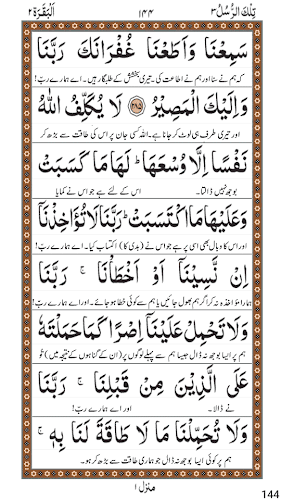 تِلْكَ الرُّسُلُ ٣ ١٤٤ اَلْبَقَرَة ٢
سَمِعْنَا وَاَطَعْنَا غُفْرَانَكَ رَبَّنَا
کہ ہم نے سنا اور ہم نے اطاعت کی۔ تیری بخشش کے طلبگار ہیں۔ اے ہمارے رب!
وَاِلَيْكَ الْمَصِيْرُ ﴿٢٨٥﴾ لَا يُكَلِّفُ اللّٰهُ
اور تیری طرف ہی لوٹ کر جانا ہے۔ اللہ کسی جان پر اس کی طاقت سے بڑھ کر
نَفْسًا اِلَّا وُسْعَهَا ؕ لَهَا مَا كَسَبَتْ
بوجھ نہیں ڈالتا۔ اس کے لئے ہے جو اس نے کمایا
وَعَلَيْهَا مَا اكْتَسَبَتْ ؕ رَبَّنَا لَا تُؤَاخِذْنَآ
اور اس کا وبال بھی اسی پر ہے جو اس نے (بدی کا) اکتساب کیا۔ اے ہمارے رب!
اِنْ نَّسِيْنَآ اَوْ اَخْطَاْنَا ۚ رَبَّنَا
ہمارا مؤاخذہ نہ کر اگر ہم بھول جائیں یا ہم سے کوئی خطا ہو جائے۔ اور اے ہمارے رب!
وَلَا تَحْمِلْ عَلَيْنَآ اِصْرًا كَمَا حَمَلْتَهٗ
ہم پر ایسا بوجھ نہ ڈال جیسا ہم سے پہلے لوگوں پر (ان کے گناہوں کے نتیجہ میں) تُو
عَلَى الَّذِيْنَ مِنْ قَبْلِنَا ۚ رَبَّنَا
نے ڈالا۔ اور اے ہمارے رب!
وَلَا تُحَمِّلْنَا مَا لَا طَاقَةَ لَنَا بِهٖ ۚ
ہم پر کوئی ایسا بوجھ نہ ڈال جو ہماری طاقت سے بڑھ کر ہو۔
منزل ١
144